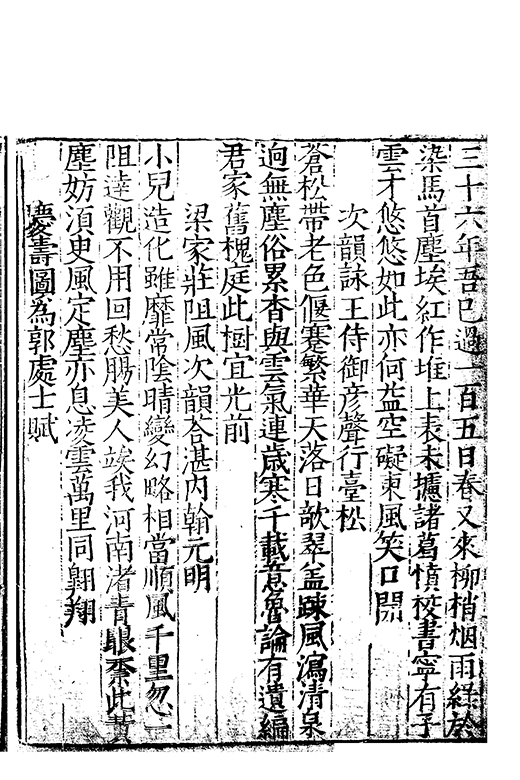 三十六年吾已過一百五日春又來柳梢烟雨綠於
染馬首塵埃紅作堆上表未攄諸葛憤校書寧有子
雲才悠悠如此亦何益空礙東風笑口開
次韻詠王侍御彥聲行臺松
蒼松帶老色偃蹇繁華天落日欹翠盖踈風瀉清泉
逈無塵俗累杳與雲氣連歲寒千載意魯論有遺編
君家舊槐庭此樹宜光前
梁家莊阻風次韻荅湛內翰元明
小兒造化雖靡常陰晴變幻略相當順風千里忽
阻達觀不用回愁腸美人竢我河南渚青眼柰此黃
塵妨湏史風定塵亦息凌雲萬里同翺翔
慶壽圖為郭處士賦